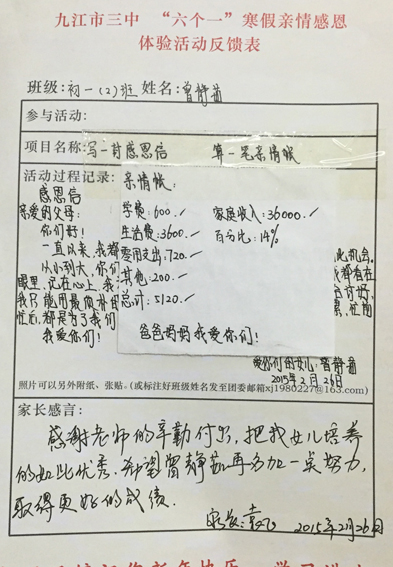 九江市三中 “六个一”寒假亲情感恩
体验活动反馈表
班级:初一(2)班 姓名:曾静茹
参与活动:
项目名称:写一封感恩信 算一笔亲情帐
活动过程记录:
感恩信
亲爱的父母:
你们好!
一直以来,我都
从小到大,你们
眼里,记在心上,我
我只能用最
忙后,都是为了我们
我爱你们!
亲情帐:
学费:600./ 家庭收入:36000./
生活费:3600./ 百分比:14%
零用支出:720./
其他:200./
总计:5120./
爸爸妈妈我爱你们!
此机会。
都看在
爱你们的女儿:曾静茹
2015年2月26日
照片可以另外附纸、张贴。(或标注好班级姓名发至团委邮箱xj1980227@163.com)
家长感言:
感谢老师的辛勤付出,把我女儿培养
的如此优秀.希望曾静茹再多加一点努力,
取得更好的成绩.
家长:袁 2015年2月26日